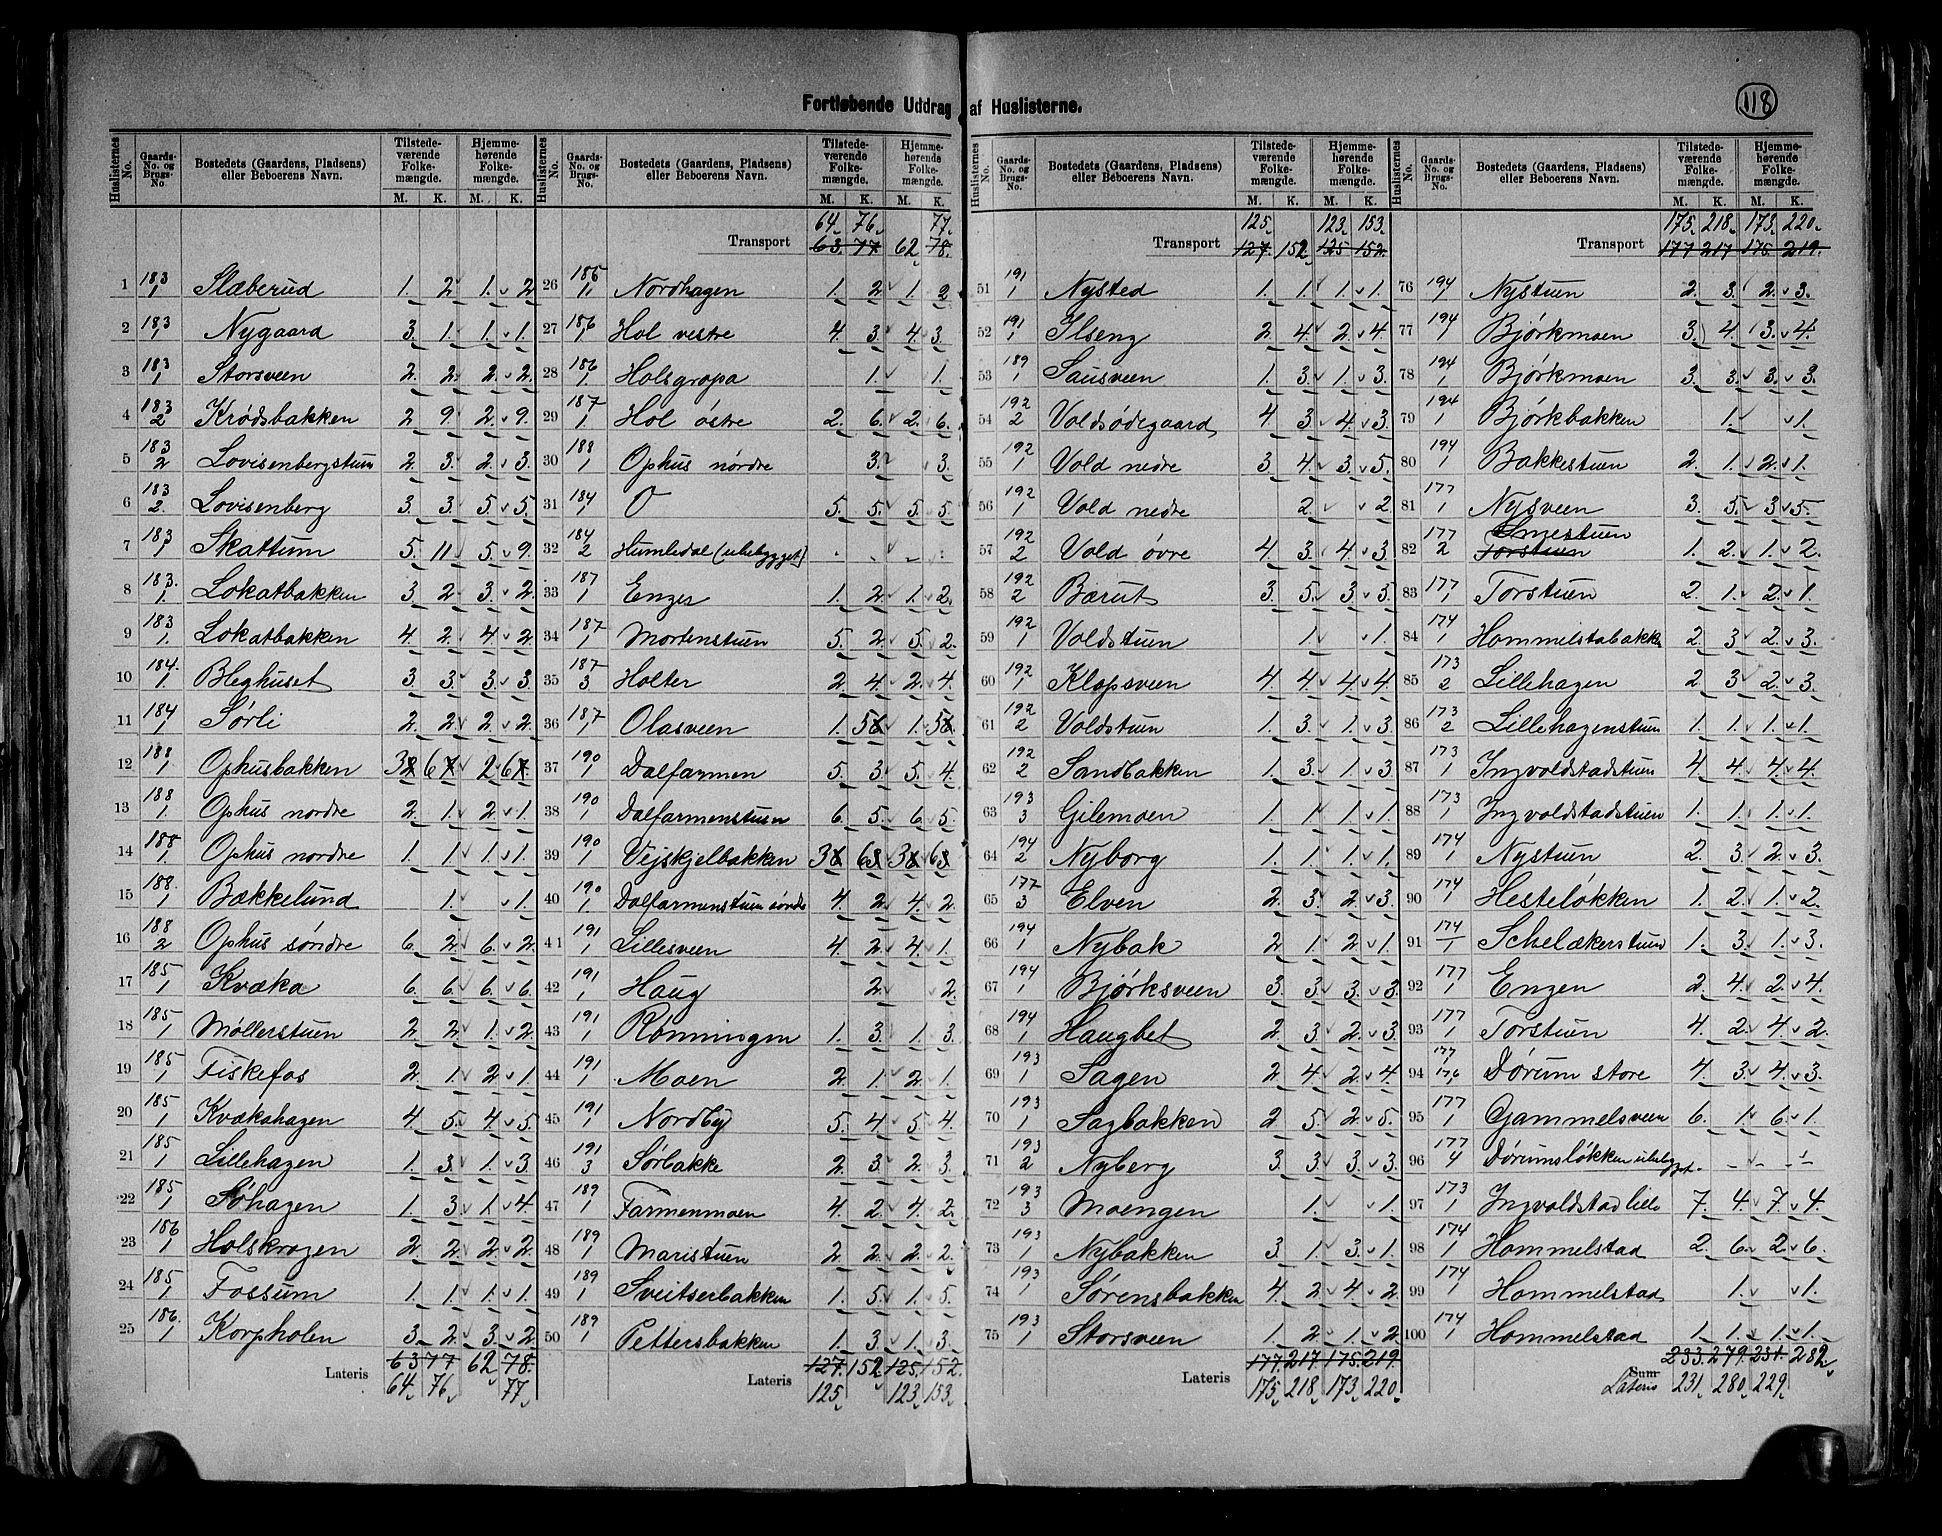 118
Fortløbende Uddrag af Huslisterne.
Huslisternes No. | Gaards-No. og Brugs-No. | Bostedets (Gaardens, Pladsens) eller Beboerens Navn. | Tilstedeværende Folkemængde. M. K. | Hjemmehørende Folkemængde. M. K.
1 183/1 Slæberud 1. 2. 1. 2
2 183/1 Nygaard 3. 1. 1. 1.
3 183/1 Storsveen 2. 2. 2. 2.
4 183/2 Krødsbakken 2 9. 2. 9.
5 183/2 Lovisenbergstuen 2. 3. 2. 3.
6 183/2. Lovisenberg 3. 3. 5. 5.
7 183/1 Skattum 5. 11 5. 9.
8 183./1. Lokatbakken 3. 2. 3. 2.
9 183/1. Lokatbakken 4. 2. 4. 2.
10 184./1. Bleghuset 3. 3. 3. 3.
11 184/1 Sørli 2. 2. 2. 2.
12 188/1 Ophusbakken 3 6 2. 6
13 188/1. Ophus nordre 2. 1. 2. 1.
14 188/1. Ophus nordre 1. 1 1. 1.
15 188./1. Bækkelund 1. 1.
16 188/2 Ophus søndre 6. 2. 6. 2.
17 185/1 Kvæka 6. 6. 6. 6.
18 185/1 Møllerstuen 2. 2. 1. 2.
19 185/1 Fiskefos 2. 1. 2. 1
20 185/1 Kvækahagen 4. 5. 4. 5.
21 185/1 Lillehagen 1. 3. 1. 3.
22 185/1 Søhagen 1. 3. 1. 4.
23 186/1 Holskrogen 2. 2. 2. 2
24 185/1 Fossum 1. 1. 1. 1.
25 186./1 Korpholen 3. 2. 3. 2.
Lateris 63 77 62 78.
64. 76. 77.
64. 76. 77.
Transport 63. 77 62 78.
26 186/1. Nordhagen 1. 2. 1. 2
27 186/1 Hol vestre 4. 3. 4. 3.
28 186/1 Holsgropa 1. 1.
29 187/1 Hol østre 2. 6. 2. 6.
30 188/1 Ophus nordre 3. 3.
31 184/1 O 5. 5. 5. 5.
32 184/2 Humledal (ubebygget)
33 187/1 Enger 1. 2. 1. 2.
34 187/1 Mortenstuen 5. 2. 5. 2.
35 187/3 Holter 2. 4. 2. 4.
36 187/1 Olasveen 1. 5 1. 5
37 190/1 Dalfarmen 5. 3. 5. 4.
38 190/1 Dalfarmenstuen 6. 5. 6. 5.
39 190/1 Vejskjelbakken 3 6 3 6
40 190/1. Dalfarmenstuen søndre 4. 2. 4. 2.
41 191/1 Lillesveen 4. 2. 4. 1.
42 191/1 Haug 2. 2.
43 191/1 Rønningen 1. 3. 1. 3
44 191/1 Moen 2. 1. 2. 1.
45 191/1 Nordby 5. 4. 5. 4.
46 191/3 Sørbakke 2. 3. 2. 3.
47 189/1 Farmenmoen 4. 2. 4. 2.
48 189/1 Maristuen 2. 2. 2. 2.
49 189/1 Sveitserbakken 1. 5. 1. 5.
50 189/1 Pettersbakken 1. 3. 1. 3.
Lateris 127. 152. 125. 152.
125. 123. 153.
125. 123. 153.
Transport 127. 152. 125 152.
51 191/1 Nysted 1. 1. 1. 1.
52 191/1 Ilseng 2. 4. 2. 4
53 189/1 Sausveen 1. 3. 1. 3.
54 192/2 Voldsødegaard 4 3. 4. 3.
55 192/1 Vold nedre 3. 4. 3. 5.
56 192/1 Vold nedre 2. 2.
57 192/2 Vold øvre 4. 3. 4. 3
58 192/2 Bærut 3. 5. 3. 5.
59 192/1 Voldstuen 1. 1.
60 192/1 Klopsveen 4. 4. 4. 4.
61 192/2 Voldstuen 1. 3. 1. 3.
62 192/2 Sandbakken 1. 3. 1. 3
63 193/3 Gilemoen 1. 1 1. 1
64 194/2 Nyborg 1. 1. 1. 1.
65 177/3 Elven 2. 3. 2. 3.
66 194/1 Nybak 2. 1. 2. 1.
67 194/1 Bjørksveen 3. 3. 3. 3
68 194/1 Haugbet 2. 3. 2. 3.
69 193/1 Sagen 2 4. 2. 4.
70 193/1 Sagbakken 2 5. 2. 5.
71 193/2 Nyberg 3. 3. 3. 3.
72 193/3 Moengen 1. 1.
73 193/1 Nybakken 3. 1. 3. 1.
74 193/1 Sørensbakken 4. 2. 4. 2
75 193/1 Storsveen 1. 2. 1. 2.
Lateris 177. 217. 175. 219.
175. 218. 173. 220.
175. 218. 173. 220.
Transport 177 217 175. 219.
76 194/1 Nystuen 2. 3. 2. 3.
77 194/1 Bjørkmoen 3. 4. 3. 4.
78 194/1 Bjørkmoen 3. 3. 3. 3
79 194/1 Bjørkbakken 1. 1.
80 194/1 Bakkestuen 2. 1. 2. 1.
81 177/1 Nysveen 3. 5. 3. 5.
82 177/2 Smestuen Torstuen 1. 2. 1. 2.
83 177/1 Torstuen 2. 1. 2. 1.
84 174/1 Hommelstabakken 2. 3. 2. 3.
85 173/2 Lillehagen 2. 3 2. 3.
86 173/2 Lillehagenstuen 1. 1. 1. 1.
87 173/1 Ingvoldstadstuen 4. 4. 4. 4.
88 173/1 Ingvoldstadstuen 1. 1. 1. 1.
89 174/1 Nystuen 2. 3. 2. 3.
90 174/1 Hesteløkken 1. 2. 1. 2
91 174/1 Schelækerstuen 1. 3. 1. 3.
92 177/1 Engen 2. 4. 2. 4.
93 177/1 Torstuen 4. 2. 4. 2.
94 177/1 176/1 Dørum store 4. 3. 4. 3.
95 177/1 Gammelsveen 6. 1. 6. 1.
96 177/4 Dørumsløkken ubebygget.
97 173/1 Ingvoldstad lille 7. 4. 7. 4.
98 174/1 Hommelstad 2. 6. 2. 6.
99 174/1 Hommelstad 1. 1.
100 174/1 Hommelstad 1. 1. 1. 1.
Sum 233. 279. 231. 282
Lateris 231. 280. 229.